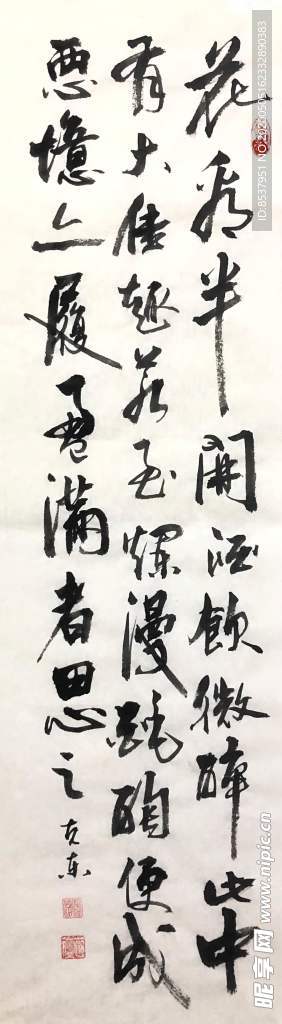 花看半开酒饮微醉此中
有大佳趣若至烂漫酕醄便成
恶境亡履盈满者思之
克东
ID:8537951 NO:20200505162332890383
昵享网 www.nipic.cn